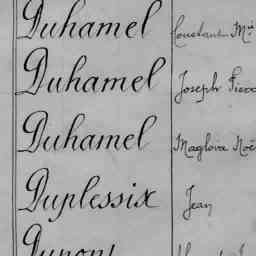 Duhamel Constant M
Duhamel Joseph
Duhamel Magloire Noë
Duplessix Jean